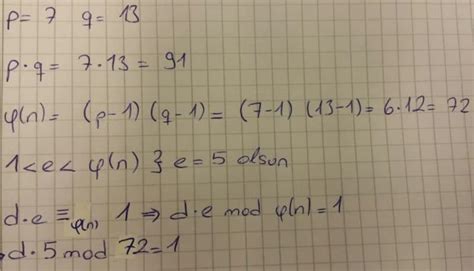 p= 7 q= 13
p·q= 7·13= 91
φ(n)= (p-1)(q-1)= (7-1)(13-1)= 6·12= 72
1<e<φ(n) } e=5 olsun
d·e ≡φ(n) 1 ⇒ d·e mod φ(n)=1
d·5 mod 72=1